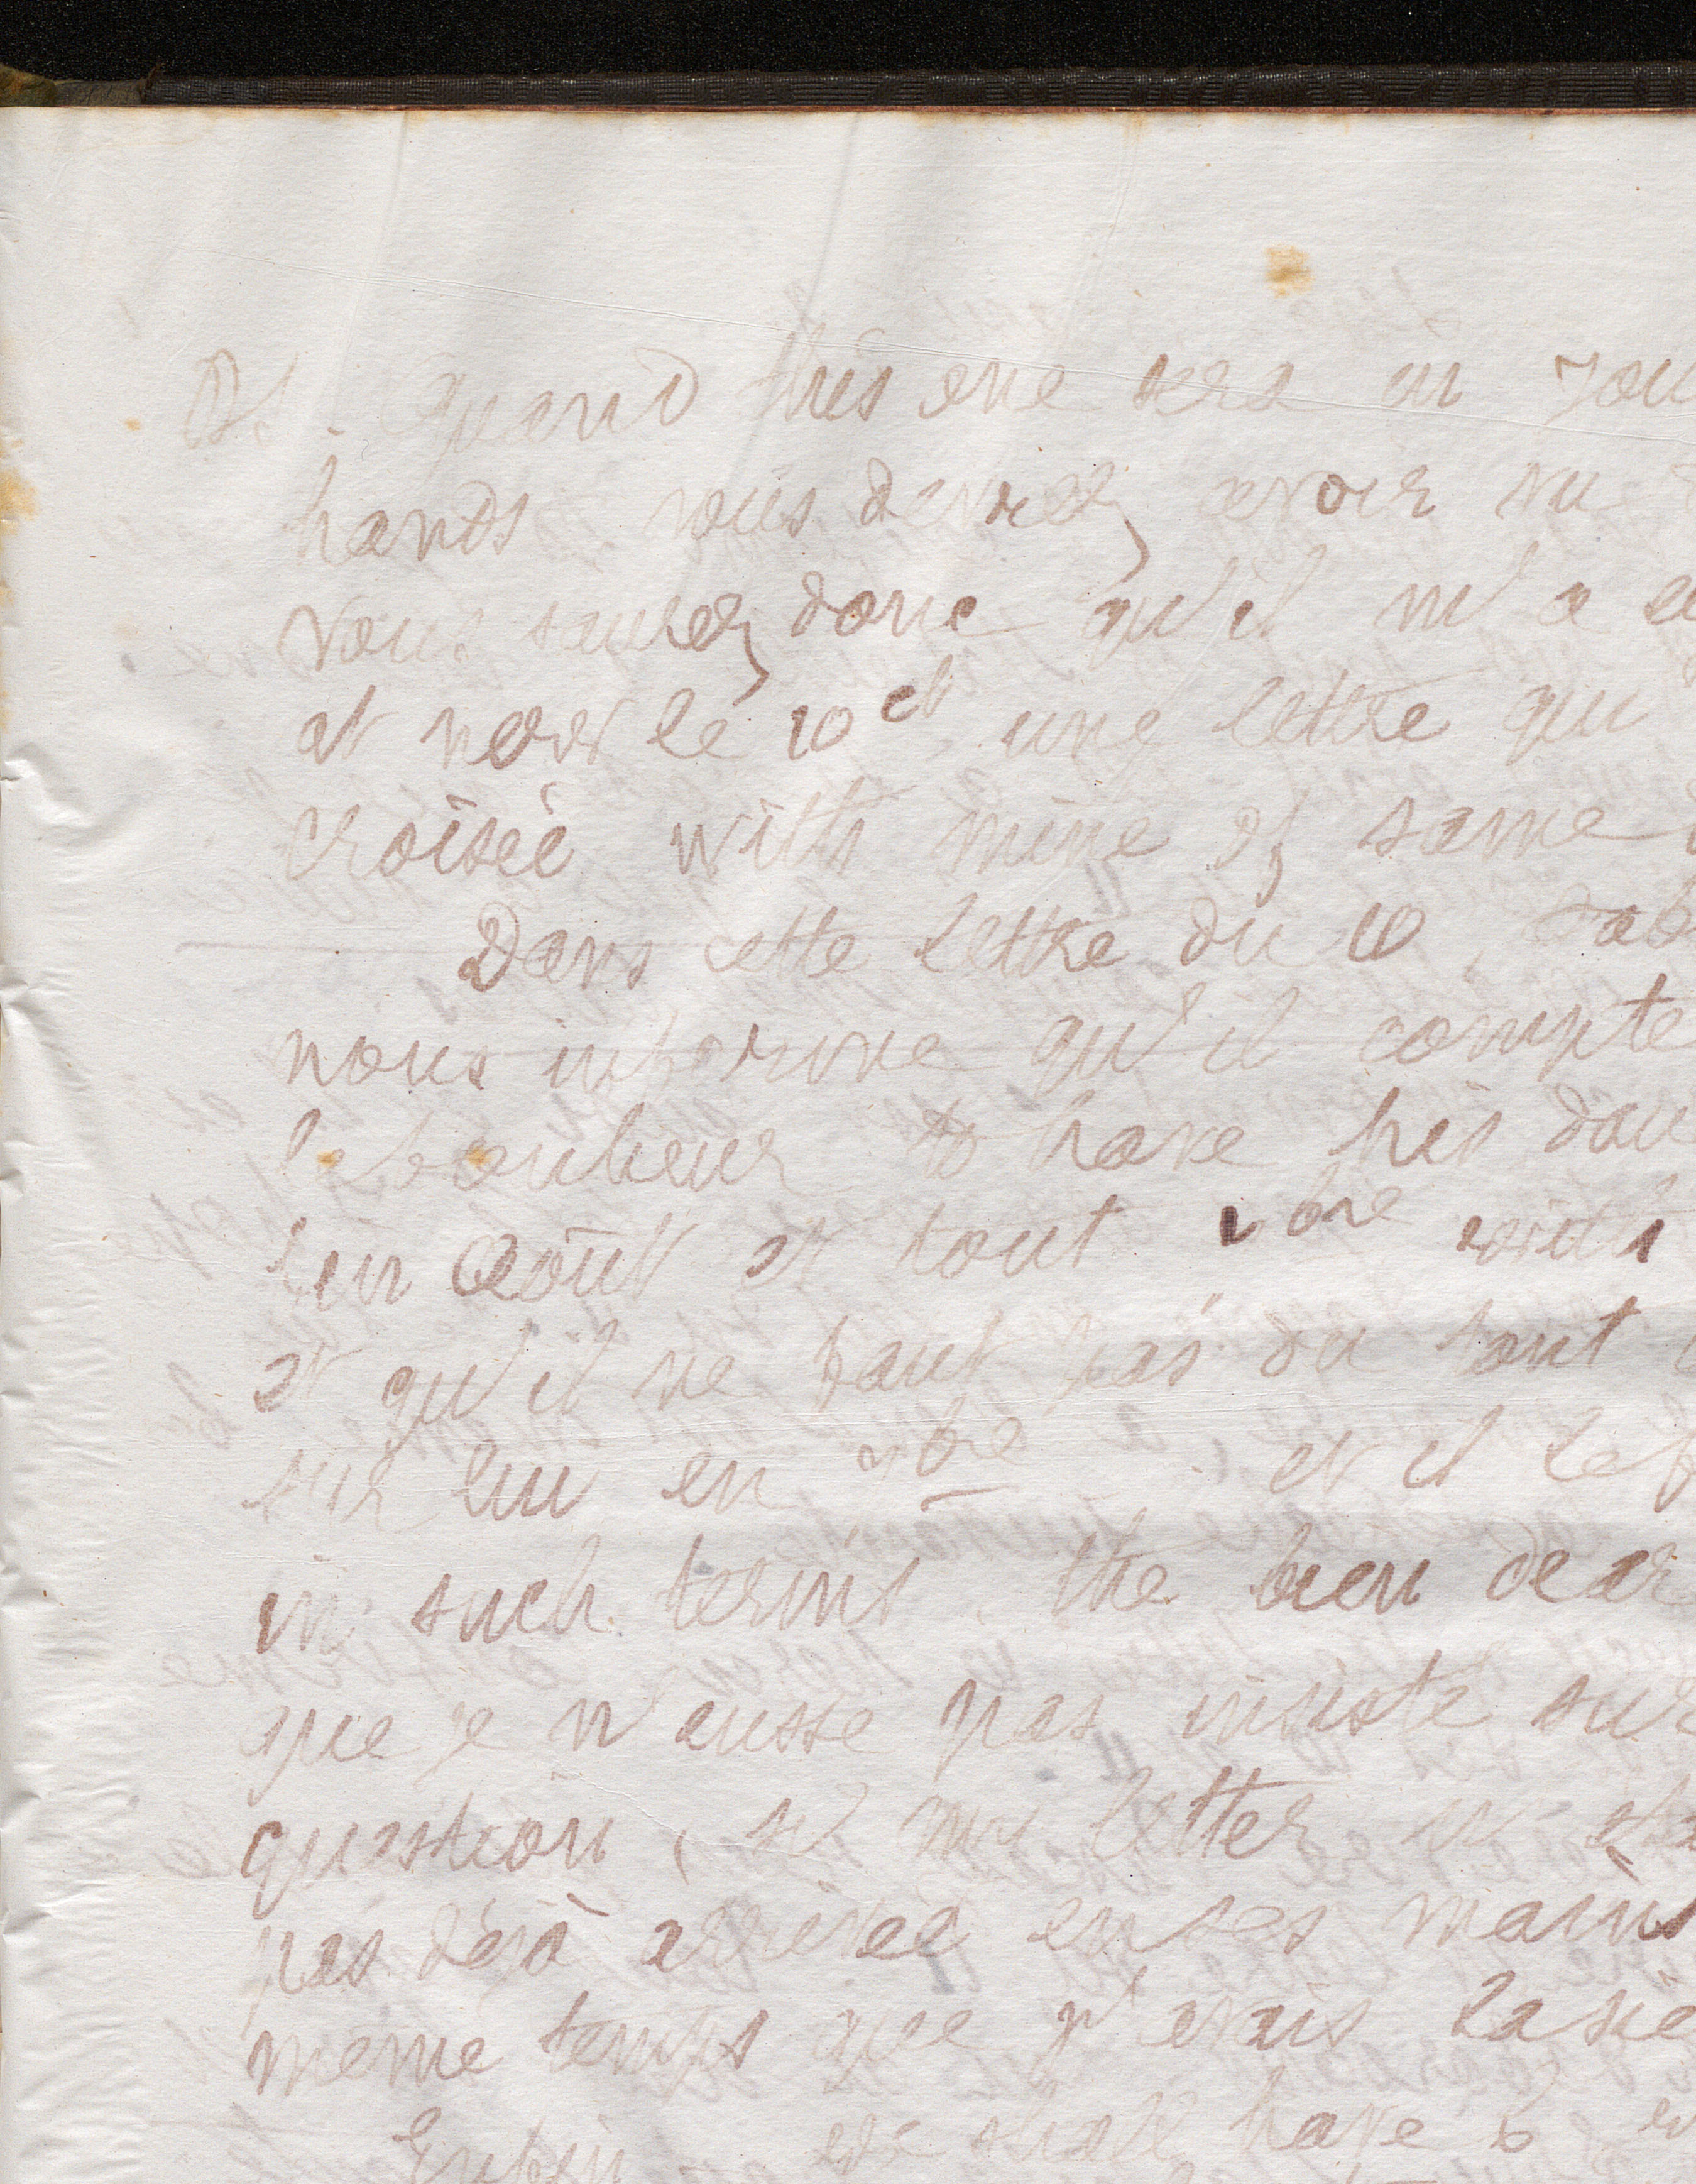 Quand this one sera in you
hands vous devrez avoir vu
Vous saurez donc qu'il m'a e
et nord le 10 ct une lettre qui
croisée with mine of same
Dans cette lettre du 10,
nous informe qu'il compte
le bonheur to have his
fin Août et tout bre with
et qu'il ne faut pas du tout
sur lui en bre et il le f
in such terms, the bien dear
que je n'eusse pas insisté sur
question, si my letter n'
pas déjà arrivée en ses mains
même temps que j'avais la sie
Enfin we shall have